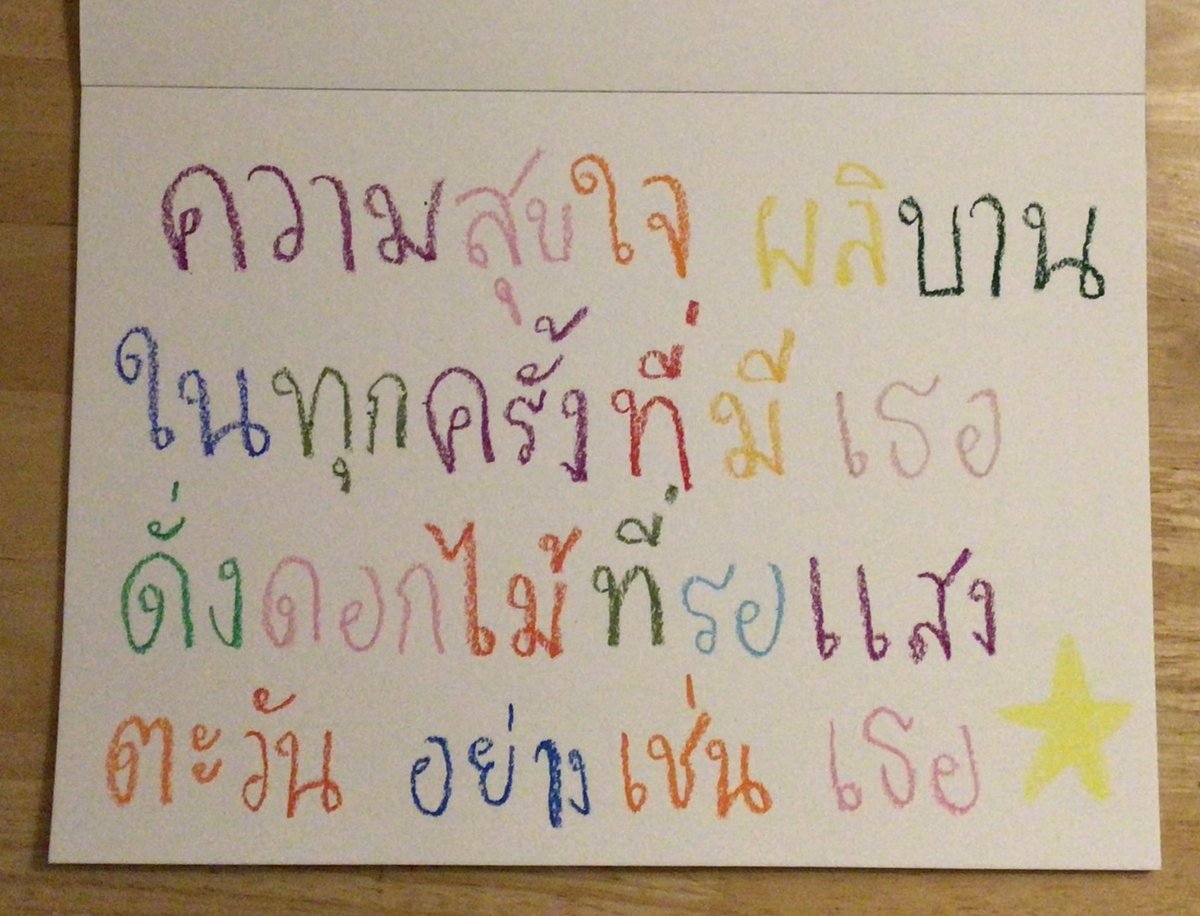 ความสุขใจ ผลิบาน
ในทุกครั้งที่มี เธอ
ดั่งดอกไม้ที่รอแสง
ตะวัน อย่างเช่น เธอ